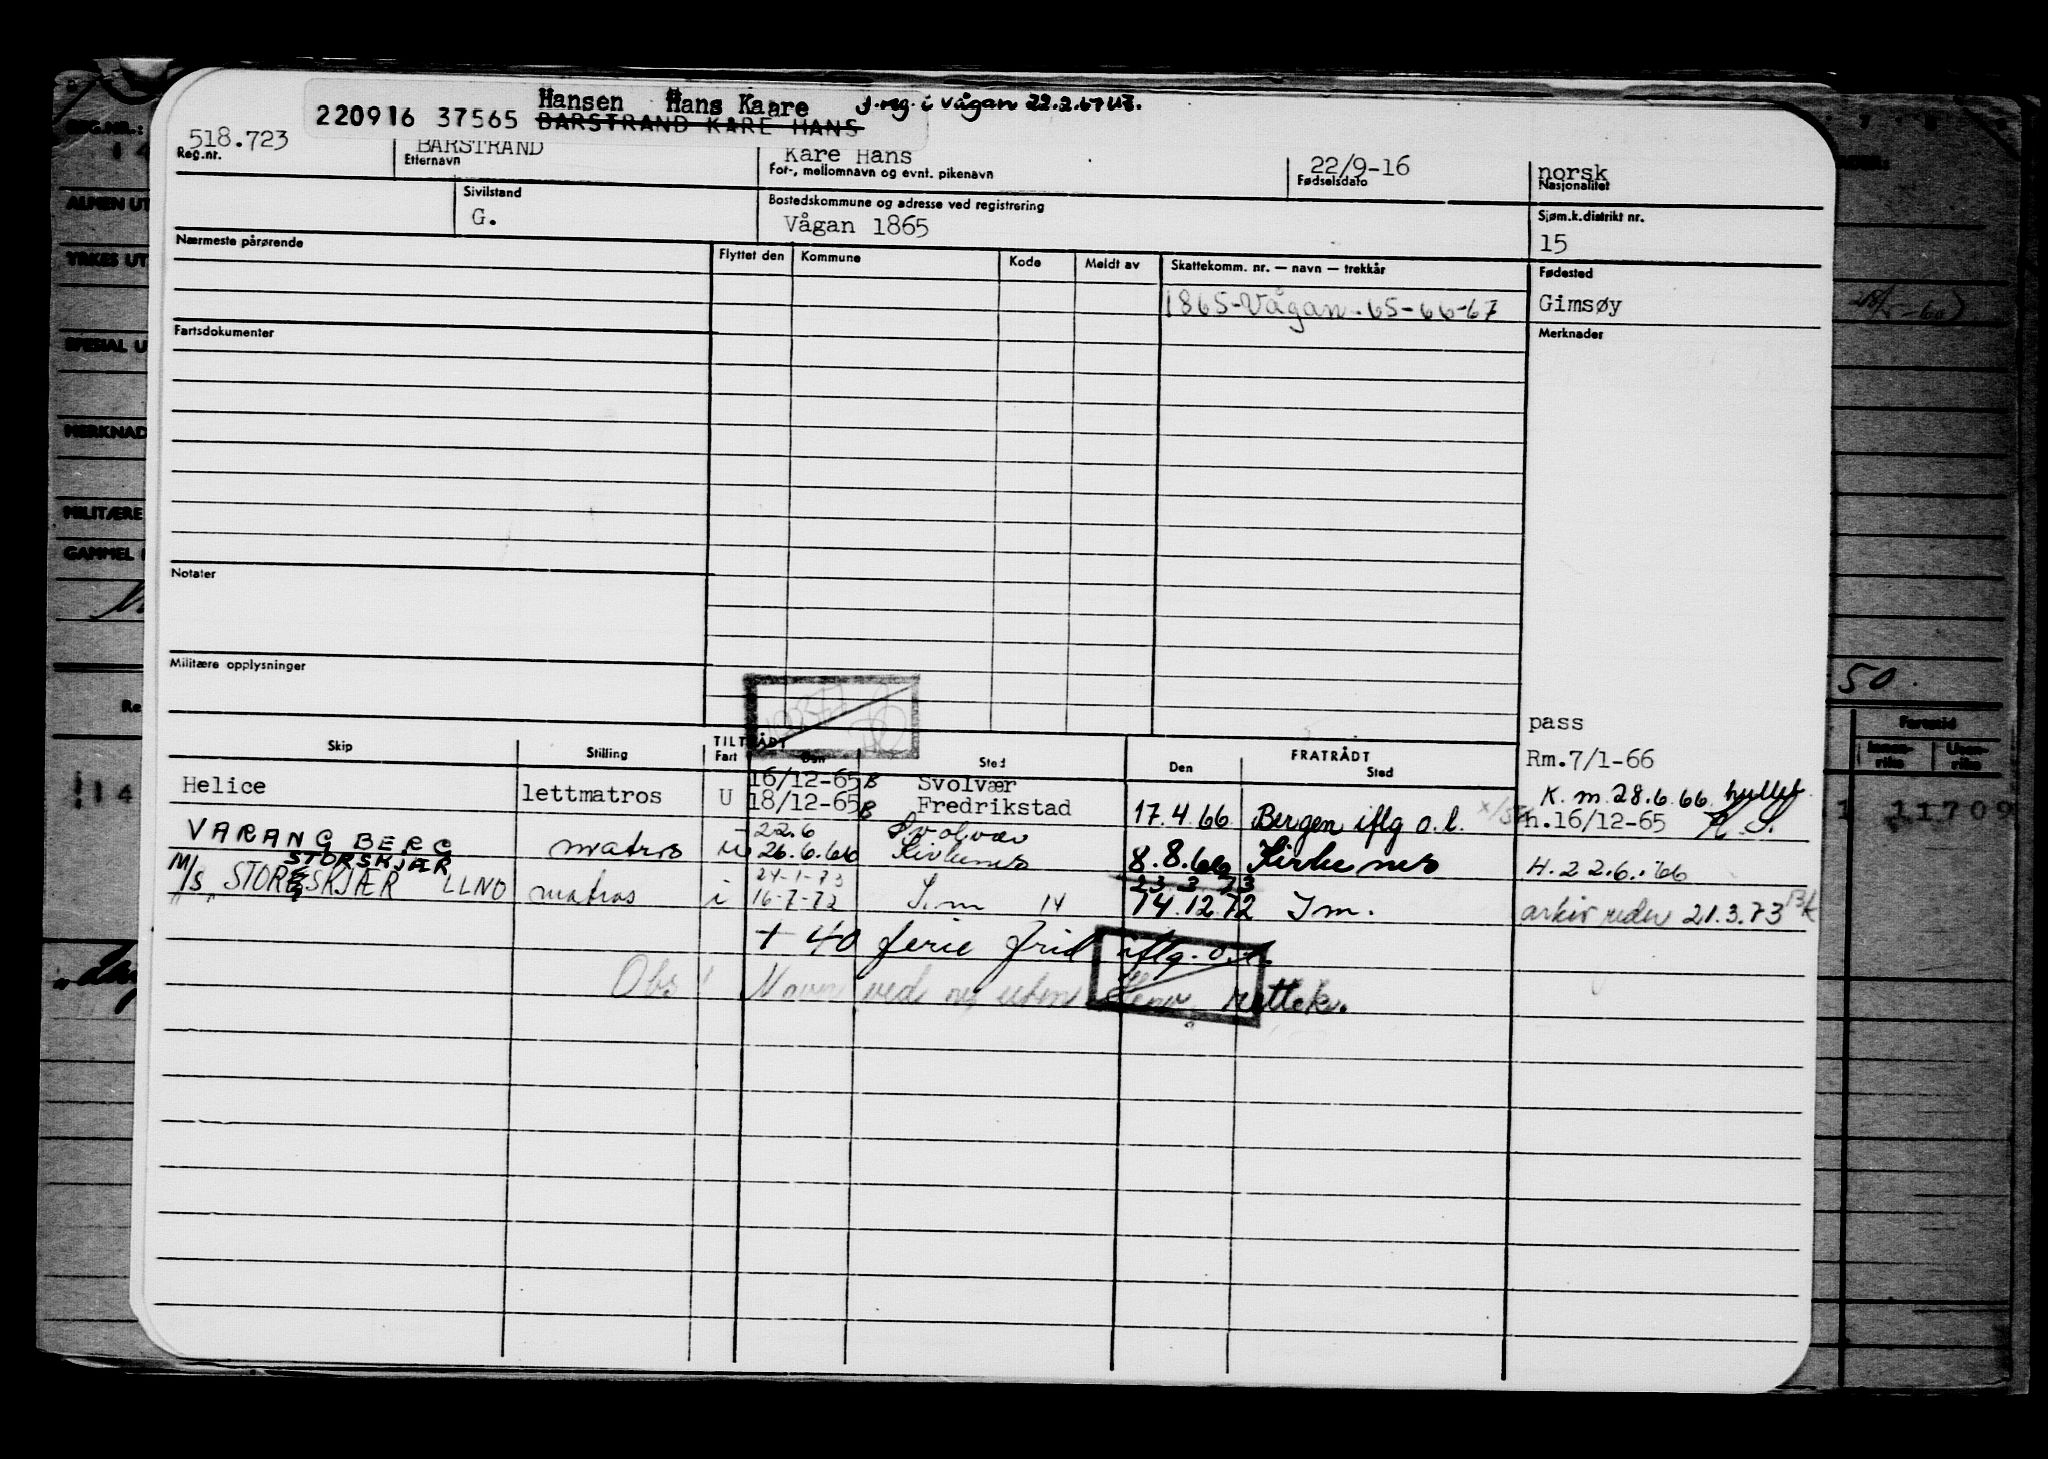 Hansen Hans Kaare J. reg. i Vågan 22.2.67
220916 37565 BARSTRAND KARE HANS
518.723 BARSTRAND Kare Hans 22/9-16 norsk
Reg.nr. Etternavn For-, mellomnavn og evnt. pikenavn Fødselsdato Nasjonalitet
Sivilstand Bostedskommune og adresse ved registrering Sjøm.k.distrikt nr.
G. Vågan 1865 15
Nærmeste pårørende Flyttet den Kommune Kode Meldt av Skattekomm. nr. — navn — trekkår Fødested
1865-Vågan. 65-66-67 Gimsøy
Fartsdokumenter Merknader
Notater
Militære opplysninger
50.
pass
Skip Stilling TILTRÅDT Fart Den Sted Den FRATRÅDT Sted
Rm.7/1-66
Helice lettmatros U 16/12-65 B Svolvær
18/12-65 B Fredrikstad 17.4.66 Bergen iflg o.l.
K.m. 28.6.66 hullet
h.16/12-65
VARANGBERG matros u 22.6 Svolvær
26.6.66 Kirkenes 8.8.66 Kirkenes H. 22.6.'66
STORSKJÆR 24-1-73 23 3 73
M/S STORSKJÆR LLNO matros i 16-7-72 I.m 14 14.12.72 Im. arkiv reder 21.3.73 BK
" "
+ 40 ferie frid iflg. o.l.
Obs! Navn ved uten rettek.
ALMEN UT
YRKES UT
SPESIAL U
MERKNAD
MILITÆRE
GAMMEL
Re
114
Fartstid
Innen-riks Uten-riks
1 11709